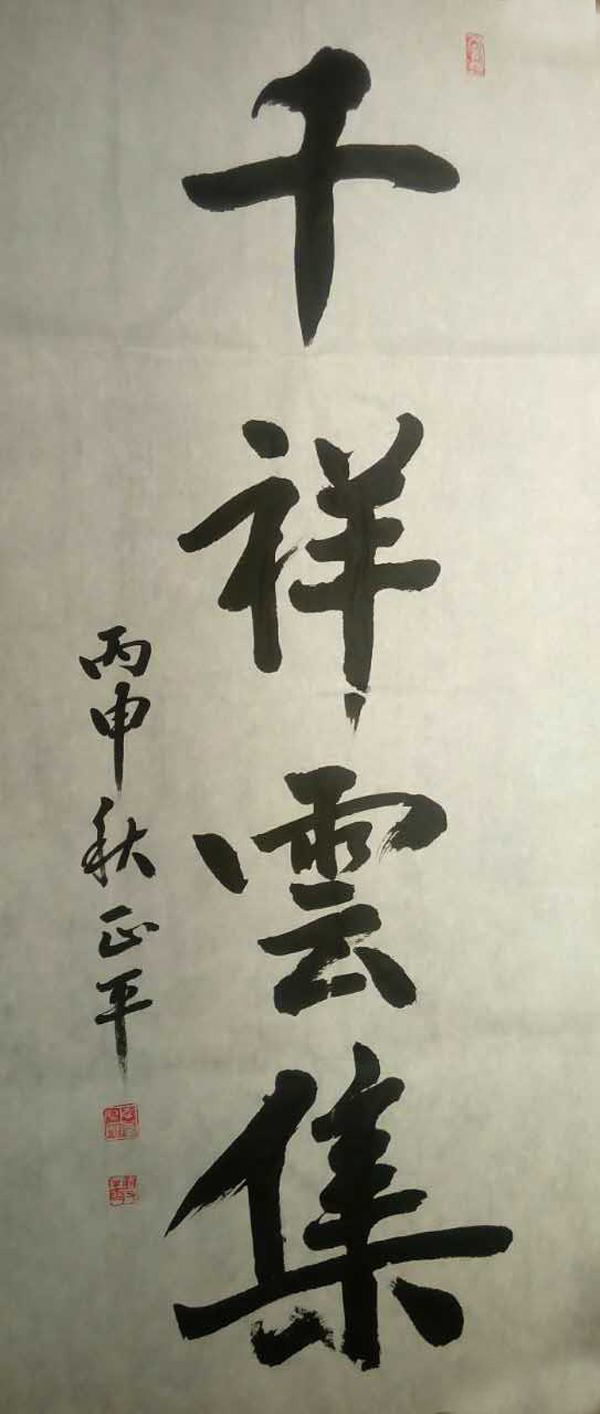 千祥雲集
丙申秋正平